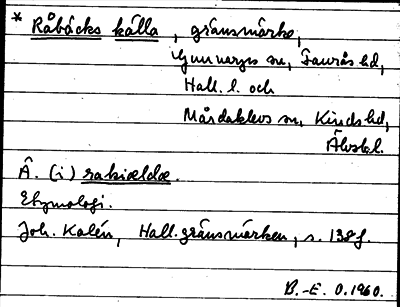 * Råbäcks källa, gränsmärke,
Gunnarps sn, Faurås hd,
Hall. l. och
Mårdaklevs sn, Kinds hd,
Älvsb. l.
Â. (i) rakiældæ.
Etymologi.
Joh. Kalén, Hall. gränsmärken, s. 138 f.
B.-E. O. 1960.